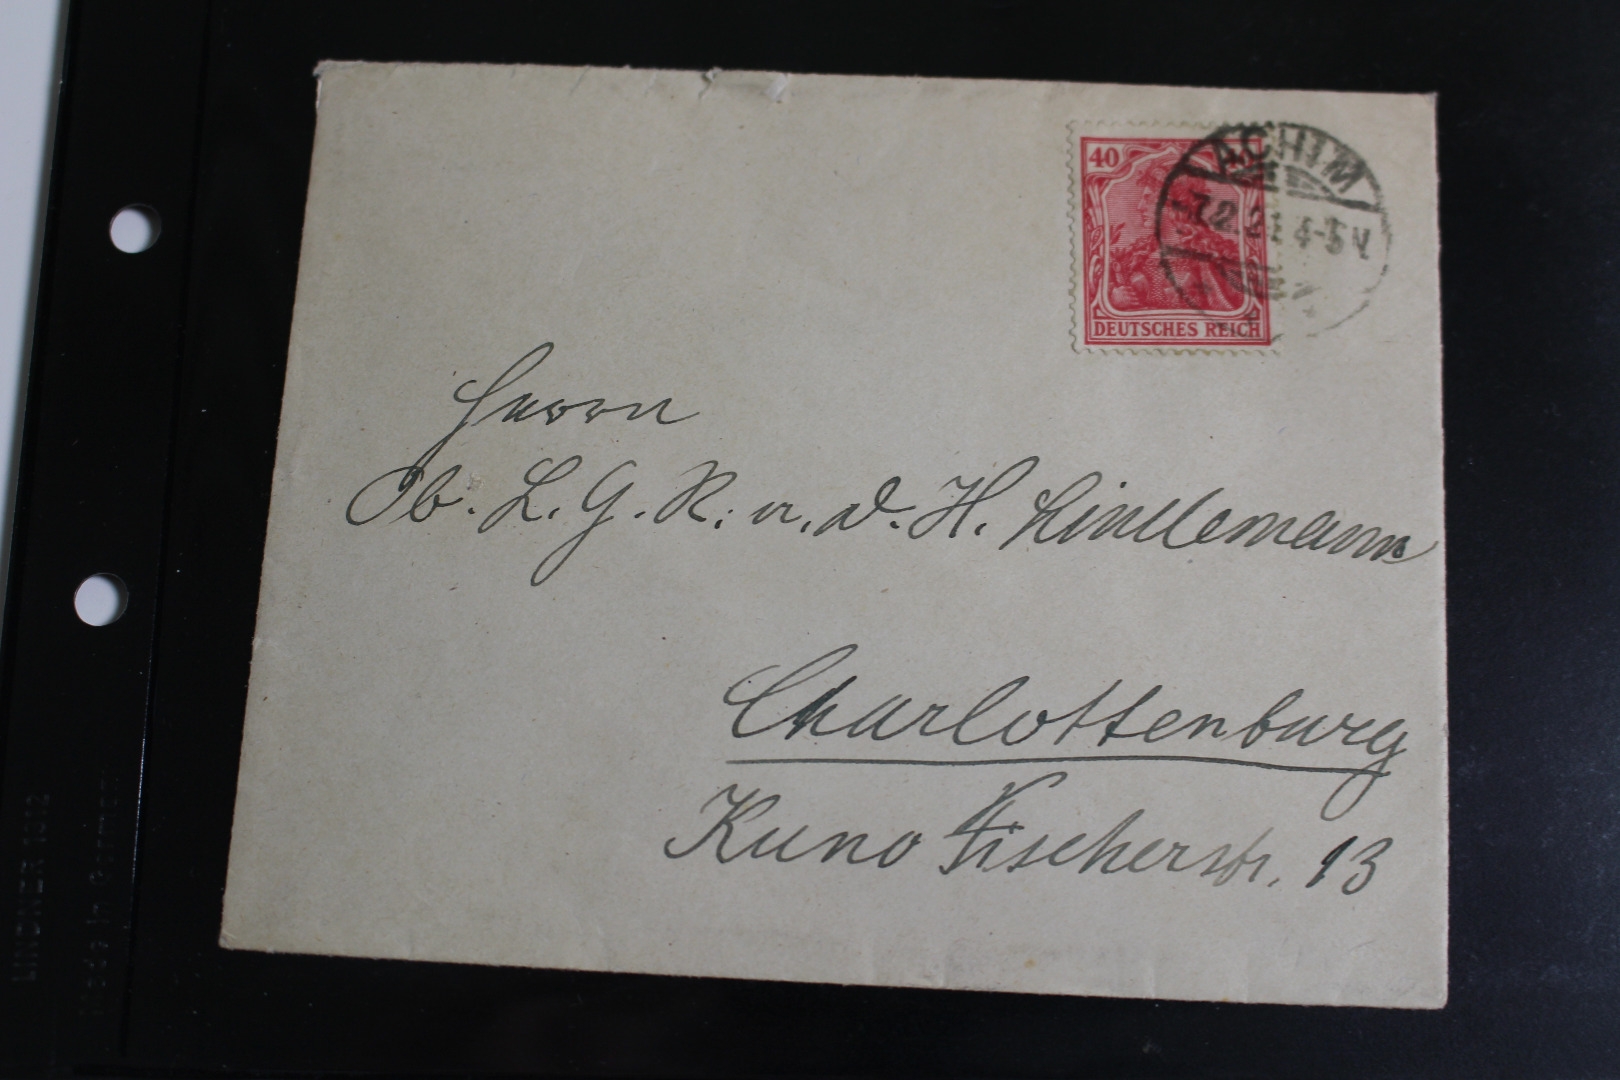 40
ACHIM
7.2.21 4-5 V.
DEUTSCHES REICH
Herrn
Ob. L. G. R. a. D. H. Lindemann
Charlottenburg
Kuno Fischerstr. 13
LINDNER 802
Made in Germany